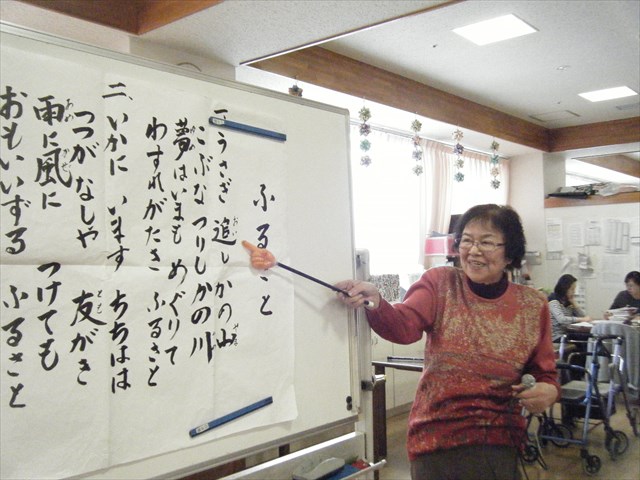 ふるさと
一、うさぎ 追し かの山
おい
こぶな つりしかの川
夢はいまも めぐりて
わすれがたき ふるさと
二、いかに います ちちはは
つつがなしや 友がき
とも
雨に風に つけても
あめ かぜ
おもいいずる ふるさと